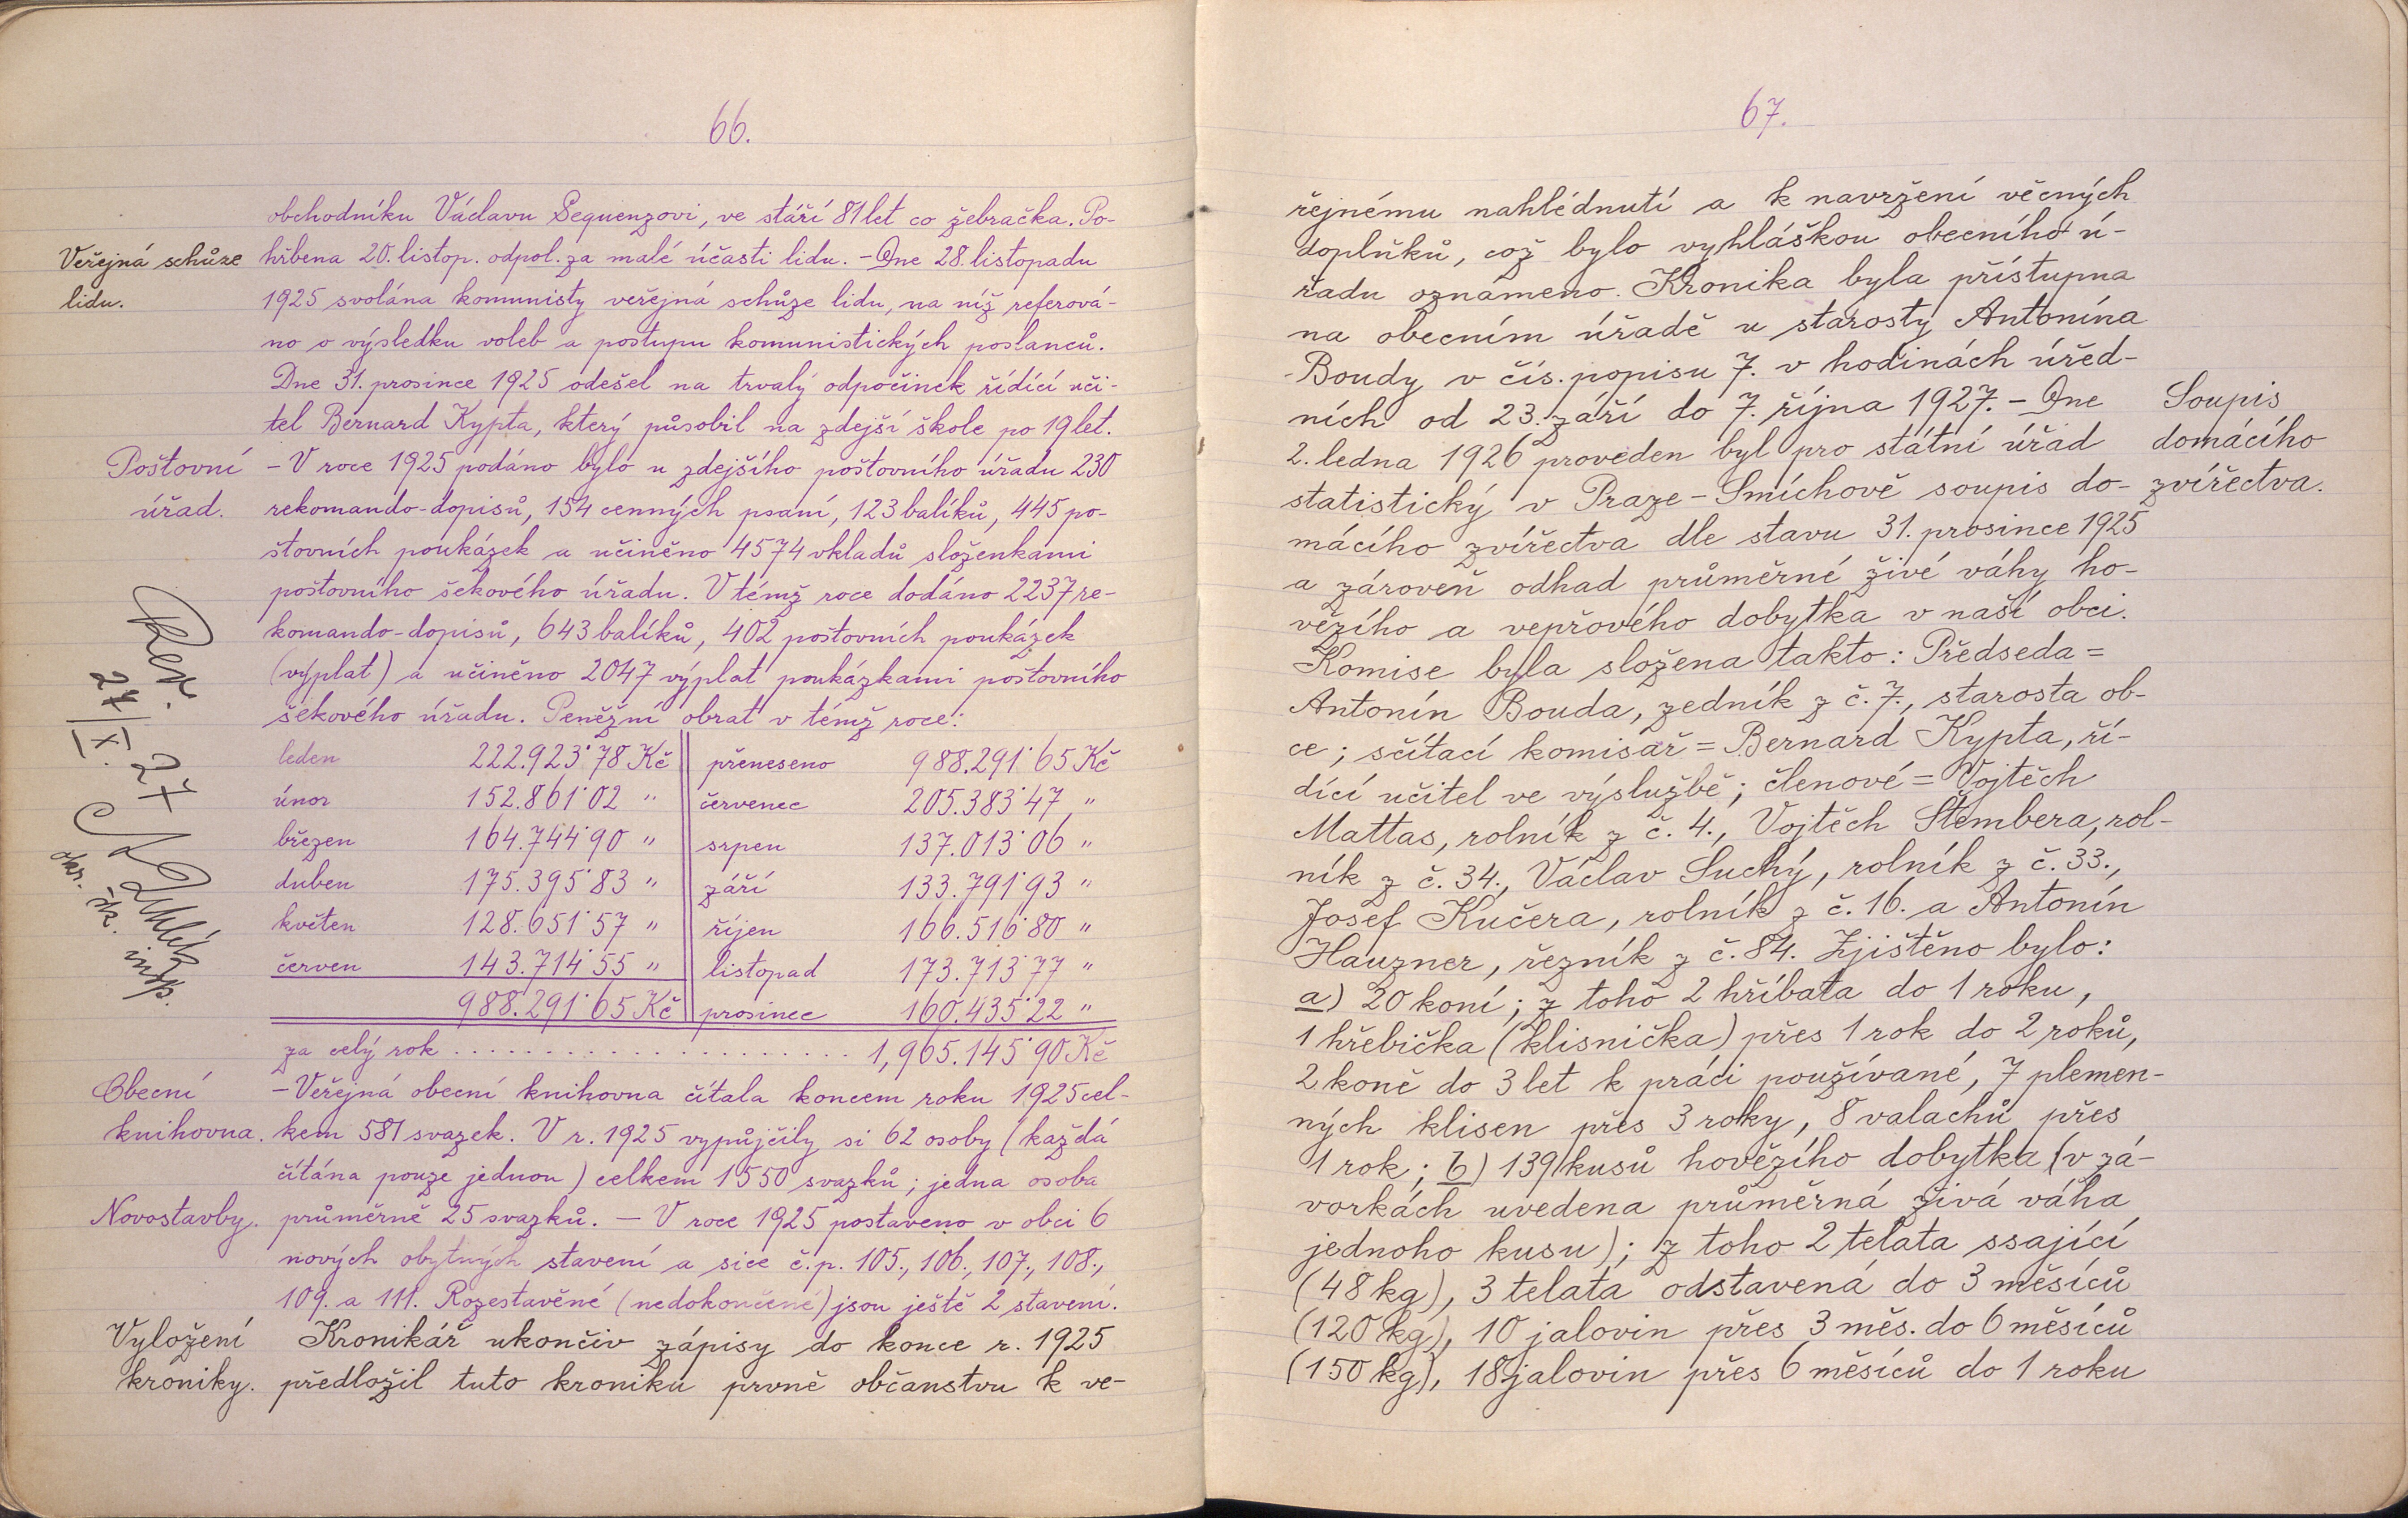 66.
obchodníku Václavu Sequenzovi, ve stáří 81 let co žebračka. Po-
Veřejná schůze
lidu.
hřbena 20. listop. odpol. za malé účasti lidu. - Dne 28. listopadu
1925 svolána komunisty veřejná schůze lidu, na níž referová-
no o výsledku voleb a postupu komunistických poslanců.
Dne 31. prosince 1925 odešel na trvalý odpočinek řídící uči-
tel Bernard Kypta, který působil na zdejší škole po 19 let.
Poštovní
úřad.
- V roce 1925 podáno bylo u zdejšího poštovního úřadu 230
rekomando-dopisů, 154 cenných psaní, 123 balíků, 445 po-
štovních poukázek a učiněno 4574 vkladů složenkami
poštovního šekového úřadu. V témž roce dodáno 2237 re-
komando-dopisů, 643 balíků, 402 poštovních poukázek
(výplat) a učiněno 2047 výplat poukázkami poštovního
šekového úřadu. Peněžní obrat v témž roce:
leden 222.923˙78 Kč přeneseno 988.291˙65 Kč
únor 152.861˙02 " červenec 205.383˙47 "
březen 164.744˙90 " srpen 137.013˙06 "
duben 175.395˙83 " září 133.791˙93 "
květen 128.651˙57 " říjen 166.516˙80 "
červen 143.714˙55 " listopad 173.713˙77 "
988.291˙65 Kč prosinec 160.435˙22 "
za celý rok . . . . . . . . . . . . . . . . . . . . 1,965.145˙90 Kč
Rev.
27/IX. 27
okr. šk. insp.
Obecní
knihovna.
- Veřejná obecní knihovna čítala koncem roku 1925 cel-
kem 581 svazek. V r. 1925 vypůjčily si 62 osoby (každá
čítána pouze jednou) celkem 1550 svazků; jedna osoba
Novostavby.
průměrně 25 svazků. - V roce 1925 postaveno v obci 6
nových obytných stavení a sice č.p. 105., 106., 107., 108.,
109. a 111. Rozestavěné (nedokončené) jsou ještě 2 stavení.
Vyložení
kroniky.
Kronikář ukončiv zápisy do konce r. 1925
předložil tuto kroniku prvně občanstvu k ve-
67.
řejnému nahlédnutí a k navržení věcných
doplňků, což bylo vyhláškou obecního ú-
řadu oznámeno. Kronika byla přístupna
na obecním úřadě u starosty Antonína
Boudy v čís. popisu 7. v hodinách úřed-
ních od 23. září do 7. října 1927. - Dne
Soupis
domácího
zvířectva.
2. ledna 1926 proveden byl pro státní úřad
statistický v Praze - Smíchově soupis do-
mácího zvířectva dle stavu 31. prosince 1925
a zároveň odhad průměrné živé váhy ho-
vězího a vepřového dobytka v naší obci.
Komise byla složena takto: Předseda =
Antonín Bouda, zedník z č. 7., starosta ob-
ce; sčítací komisař = Bernard Kypta, ří-
dící učitel ve výslužbě; členové = Vojtěch
Mattas, rolník z č. 4., Vojtěch Štembera, rol-
ník z č. 34., Václav Suchý, rolník z č. 33.,
Josef Kučera, rolník z č. 16. a Antonín
Hauzner, řezník z č. 84. Zjištěno bylo:
a) 20 koní; z toho 2 hříbata do 1 roku,
1 hřebička (klisnička) přes 1 rok do 2 roků,
2 koně do 3 let k práci používané, 7 plemen-
ných klisen přes 3 roky, 8 valachů přes
1 rok; b) 139 kusů hovězího dobytka (v zá-
vorkách uvedena průměrná živá váha
jednoho kusu); z toho 2 telata ssající
(48 kg), 3 telata odstavená do 3 měsíců
(120 kg), 10 jalovin přes 3 měs. do 6 měsíců
(150 kg), 18 jalovin přes 6 měsíců do 1 roku